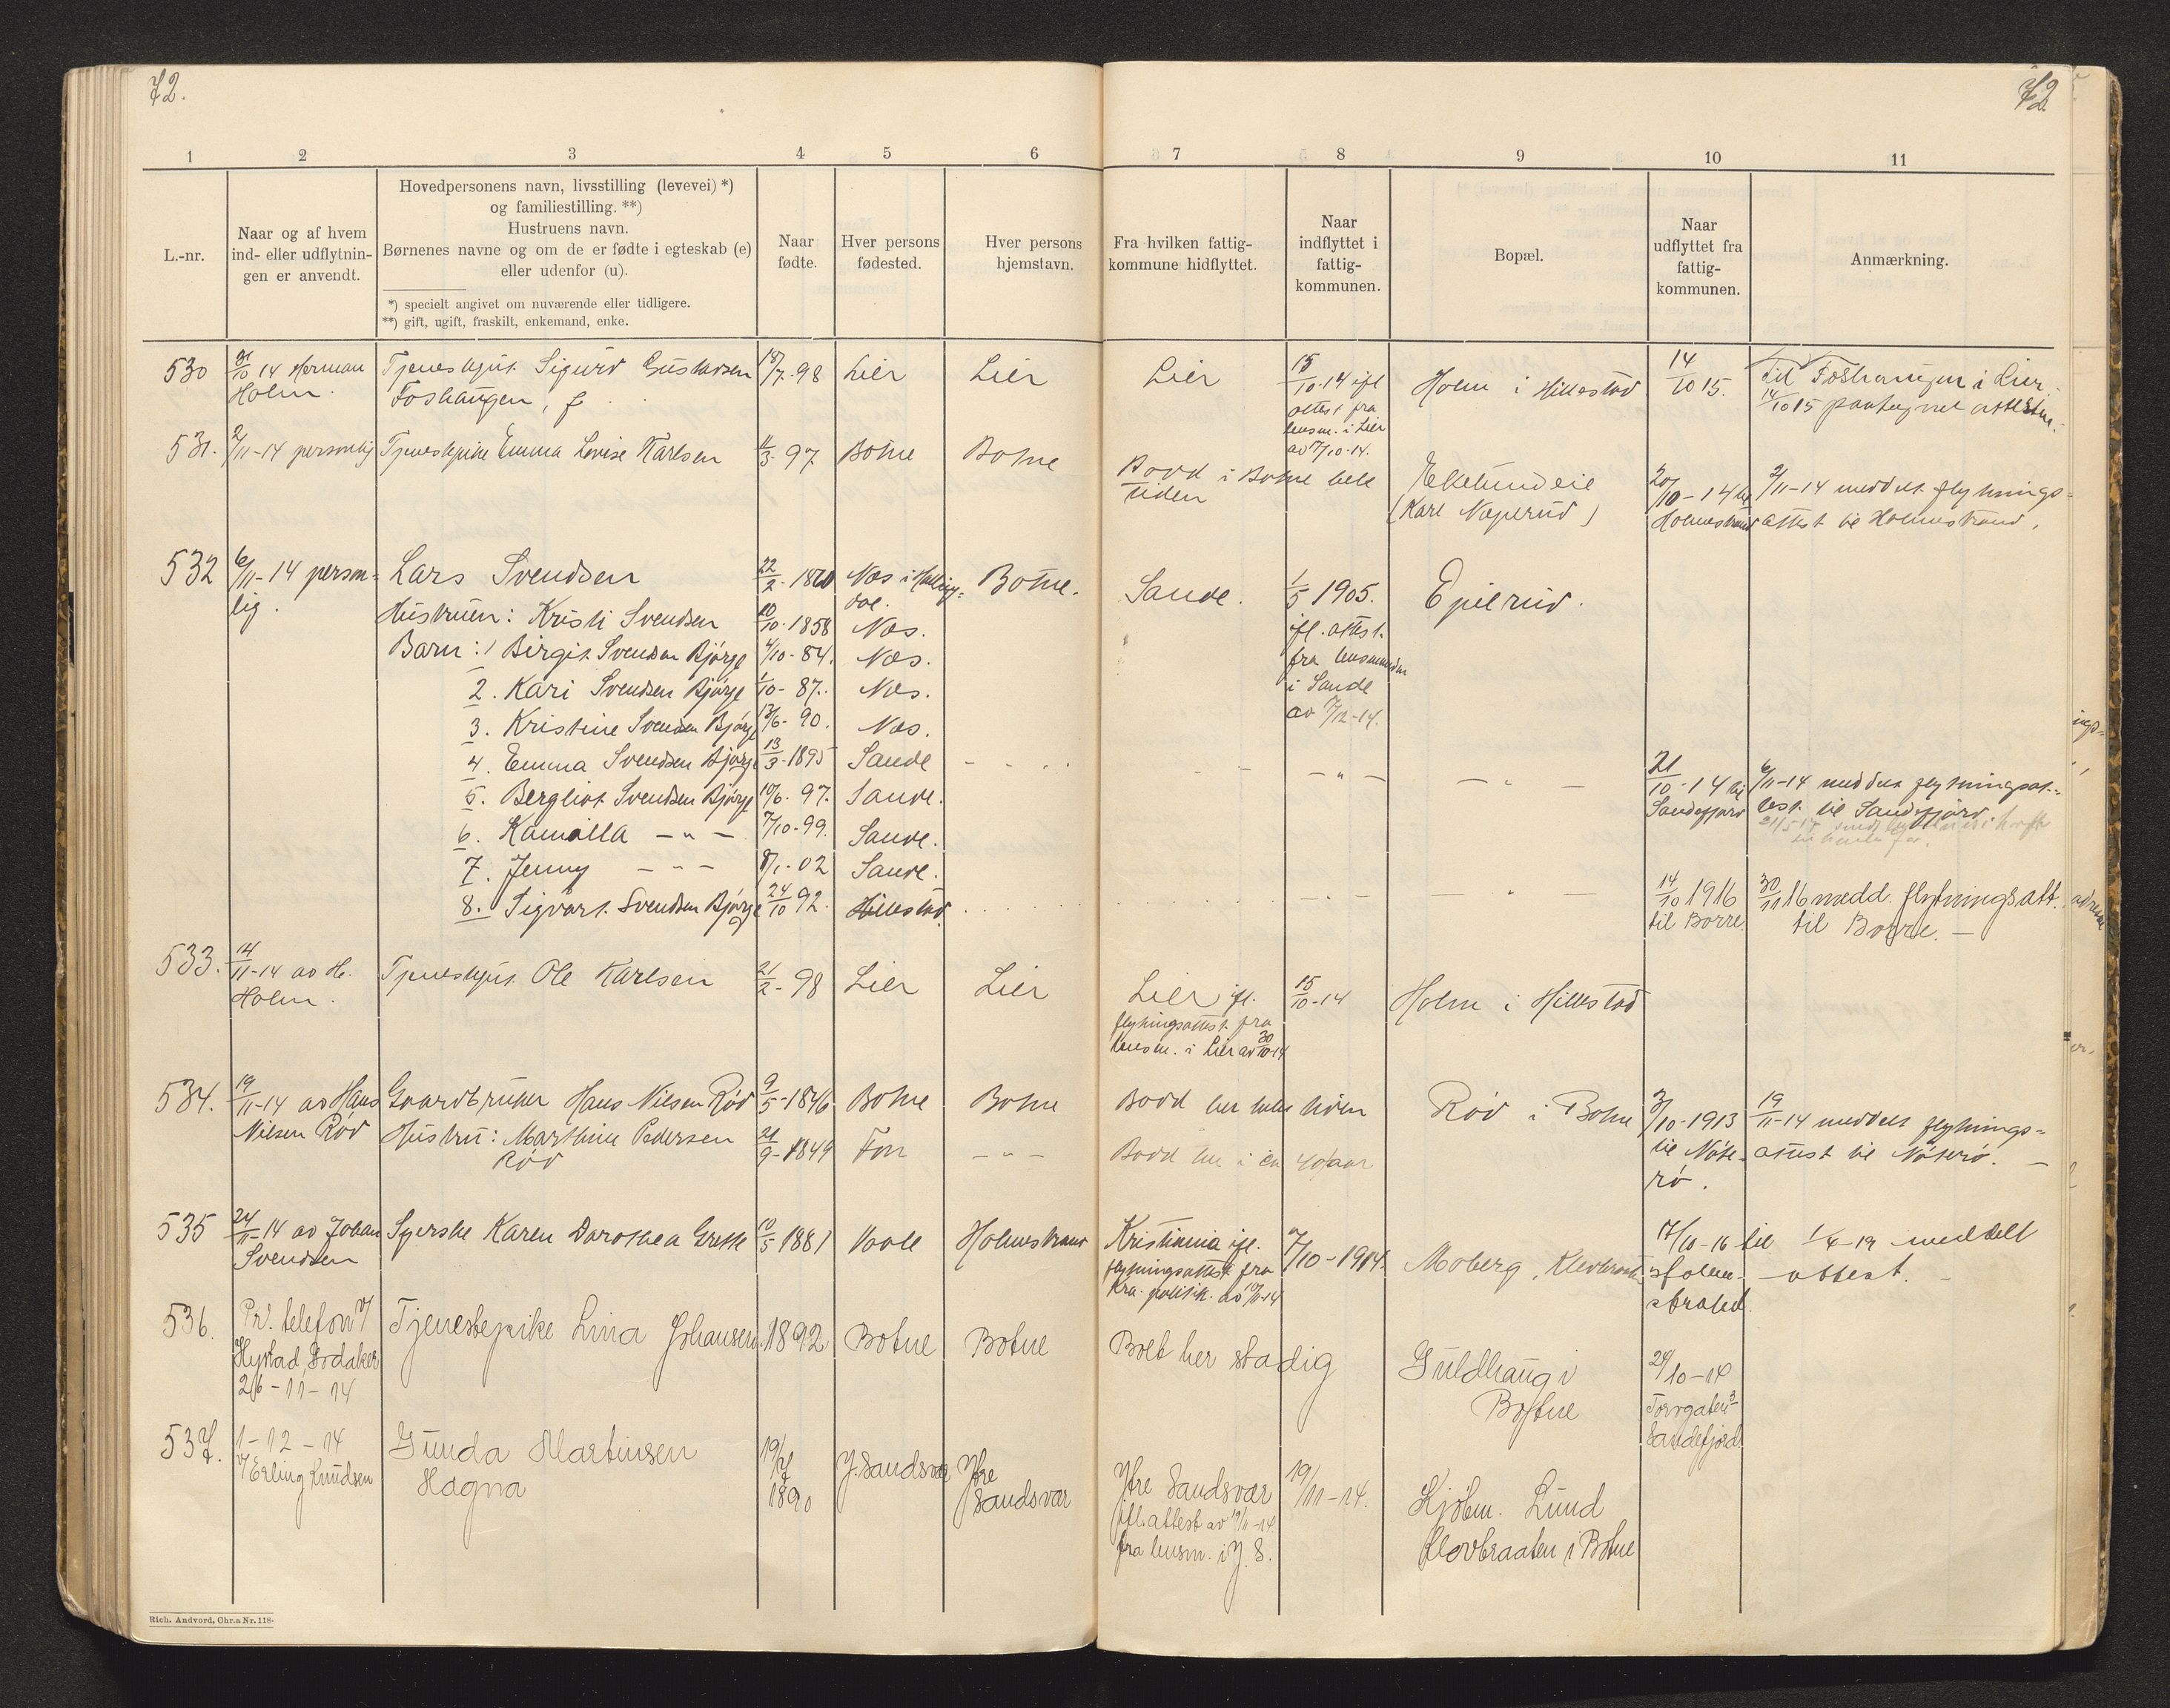 72.
72
1 2 3 4 5 6 7 8 9 10 11
L.-nr.
Naar og af hvem
ind- eller udflytnin-
gen er anvendt.
Hovedpersonens navn, livsstilling (levevei) *)
og familiestilling. **)
Hustruens navn.
Børnenes navne og om de er fødte i egteskab (e)
eller udenfor (u).
*) specielt angivet om nuværende eller tidligere.
**) gift, ugift, fraskilt, enkemand, enke.
Naar
fødte.
Hver persons
fødested.
Hver persons
hjemstavn.
Fra hvilken fattig-
kommune hidflyttet.
Naar
indflyttet i
fattig-
kommunen.
Bopæl.
Naar
udflyttet fra
fattig-
kommunen.
Anmærkning.
530 31/10 14 Herman Tjenestgut Sigurd Gustavsen 18/7-98 Lier Lier Lier 15/10-14 ifl Holm i Hillestad 14/10 15. Til Foshaugen i Lier
Holm. Foshaugen, attest fra 14/10 15 paategnet attesten.
lensm. i Lier
av 17/10-14.
531. 2/11-14 personlig Tjenestepike Emma Lovise Karlsen 11/3-97 Botne Botne Bodd i Botne hele Ekelundeie 20/10-14 til 2/11-14 meddelt flytnings=
tiden (Karl Neperud) Holmestrand attest til Holmestrand.
532 6/11-14 person= Lars Svendsen 22/2-1860 Næs i Halling= Botne. Sande. 1/5 1905. Epilrud.
lig. Hustruen: Kristi Svendsen 10/10-1858 dal. Næs. ifl. attest.
Barn: 1 Birgit Svendsen Bjørge 4/10-84. Næs. fra lensmanden
2. Kari Svendsen Bjørge 1/10-87. Næs. i Sande
3. Kristine Svendsen Bjørge 13/6-90. Næs. av 7/12-14.
4. Emma Svendsen Bjørge 13/3-1895 Sande - - - - - - - " - - " - 21/10-14 til 6/11-14 meddelt flytningsat-
5. Bergliot Svendsen Bjørge 10/6-97. Sande. Sandefjord test til Sandefjord.
6. Kamilla - " - 7/10-99. Sande.
7. Jenny - " - 8/1-02 Sande.
8. Sigvart Svendsen Bjørge 24/10 92. Hillestad - " - - " - 14/10 1916 30/11 16 medd. flytningsatt.
til Borre. til Borre. -
533. 14/11-14 av H. Tjenestgut Ole Karlsen 21/2-98 Lier Lier Lier ifl. 15/10-14 Holm i Hillestad
Holm. flytningsattest fra
lensm. i Lier av 30/10-14
534. 19/11-14 av Hans Gaardbruker Hans Nilsen Rød 9/5-1846 Botne Botne Bodd her hele tiden Rød i Botne 3/10-1913 19/11-14 meddelt flytnings=
Nilsen Rød Hustru: Marthine Pedersen 21/9-1849 Fon - " - Bodd her i ca 40 aar til Nøte- attest til Nøterø. -
Rød rø.
535 24/11-14 av Johan Syerske Karen Dorothea Grette 10/5 1881 Vaale Holmestrand Kristiania ifl. 7/10-1914. Moberg, Klevbraaten 17/10-16 til 1/4-19 meddelt
Svendsen flytningsattest fra Holme- attest. -
Kra. politik. av 10/11-14 strand.
536. Pr. telefon v/ Tjenestepike Lina Johansen. 1892 Botne Botne Boet her stadig Guldhaug i 24/10-14
Hystad, Sørdaker Botne Torvgaten 3
26-11-14 Sandefjord
537. 1-12-14 Gunda Martinsen 19/7 Y. Sandsvær Ytre Ytre Sandsvær 19/11-14. Kjøbm. Lund
v/ Erling Knudsen Hagna 1890 Sandsvær ifl. attest av 19/11-14. Klovbraaten i Botne
fra lensm. i Y. S.
Rich. Andvord, Chr.a Nr. 118.